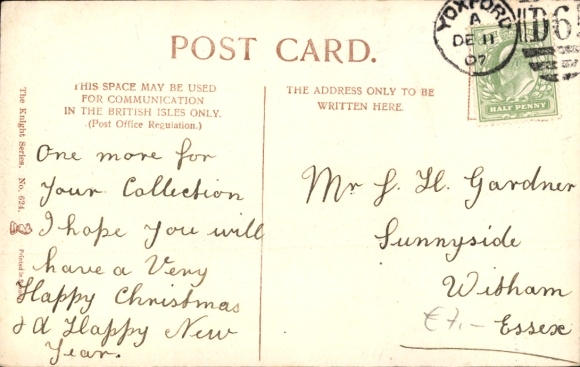 YOXFORD
A
DE 11
07
D61
HALF PENNY
POST CARD.
THIS SPACE MAY BE USED
FOR COMMUNICATION
IN THE BRITISH ISLES ONLY.
(Post Office Regulation.)
THE ADDRESS ONLY TO BE
WRITTEN HERE.
The Knight Series. No. 624.
Printed in
One more for
Your Collection
I hope you will
have a Very
Happy Christmas
& A Happy New
Year.
Mr S. H. Gardner
Sunnyside
Witham
Essex
€7.-